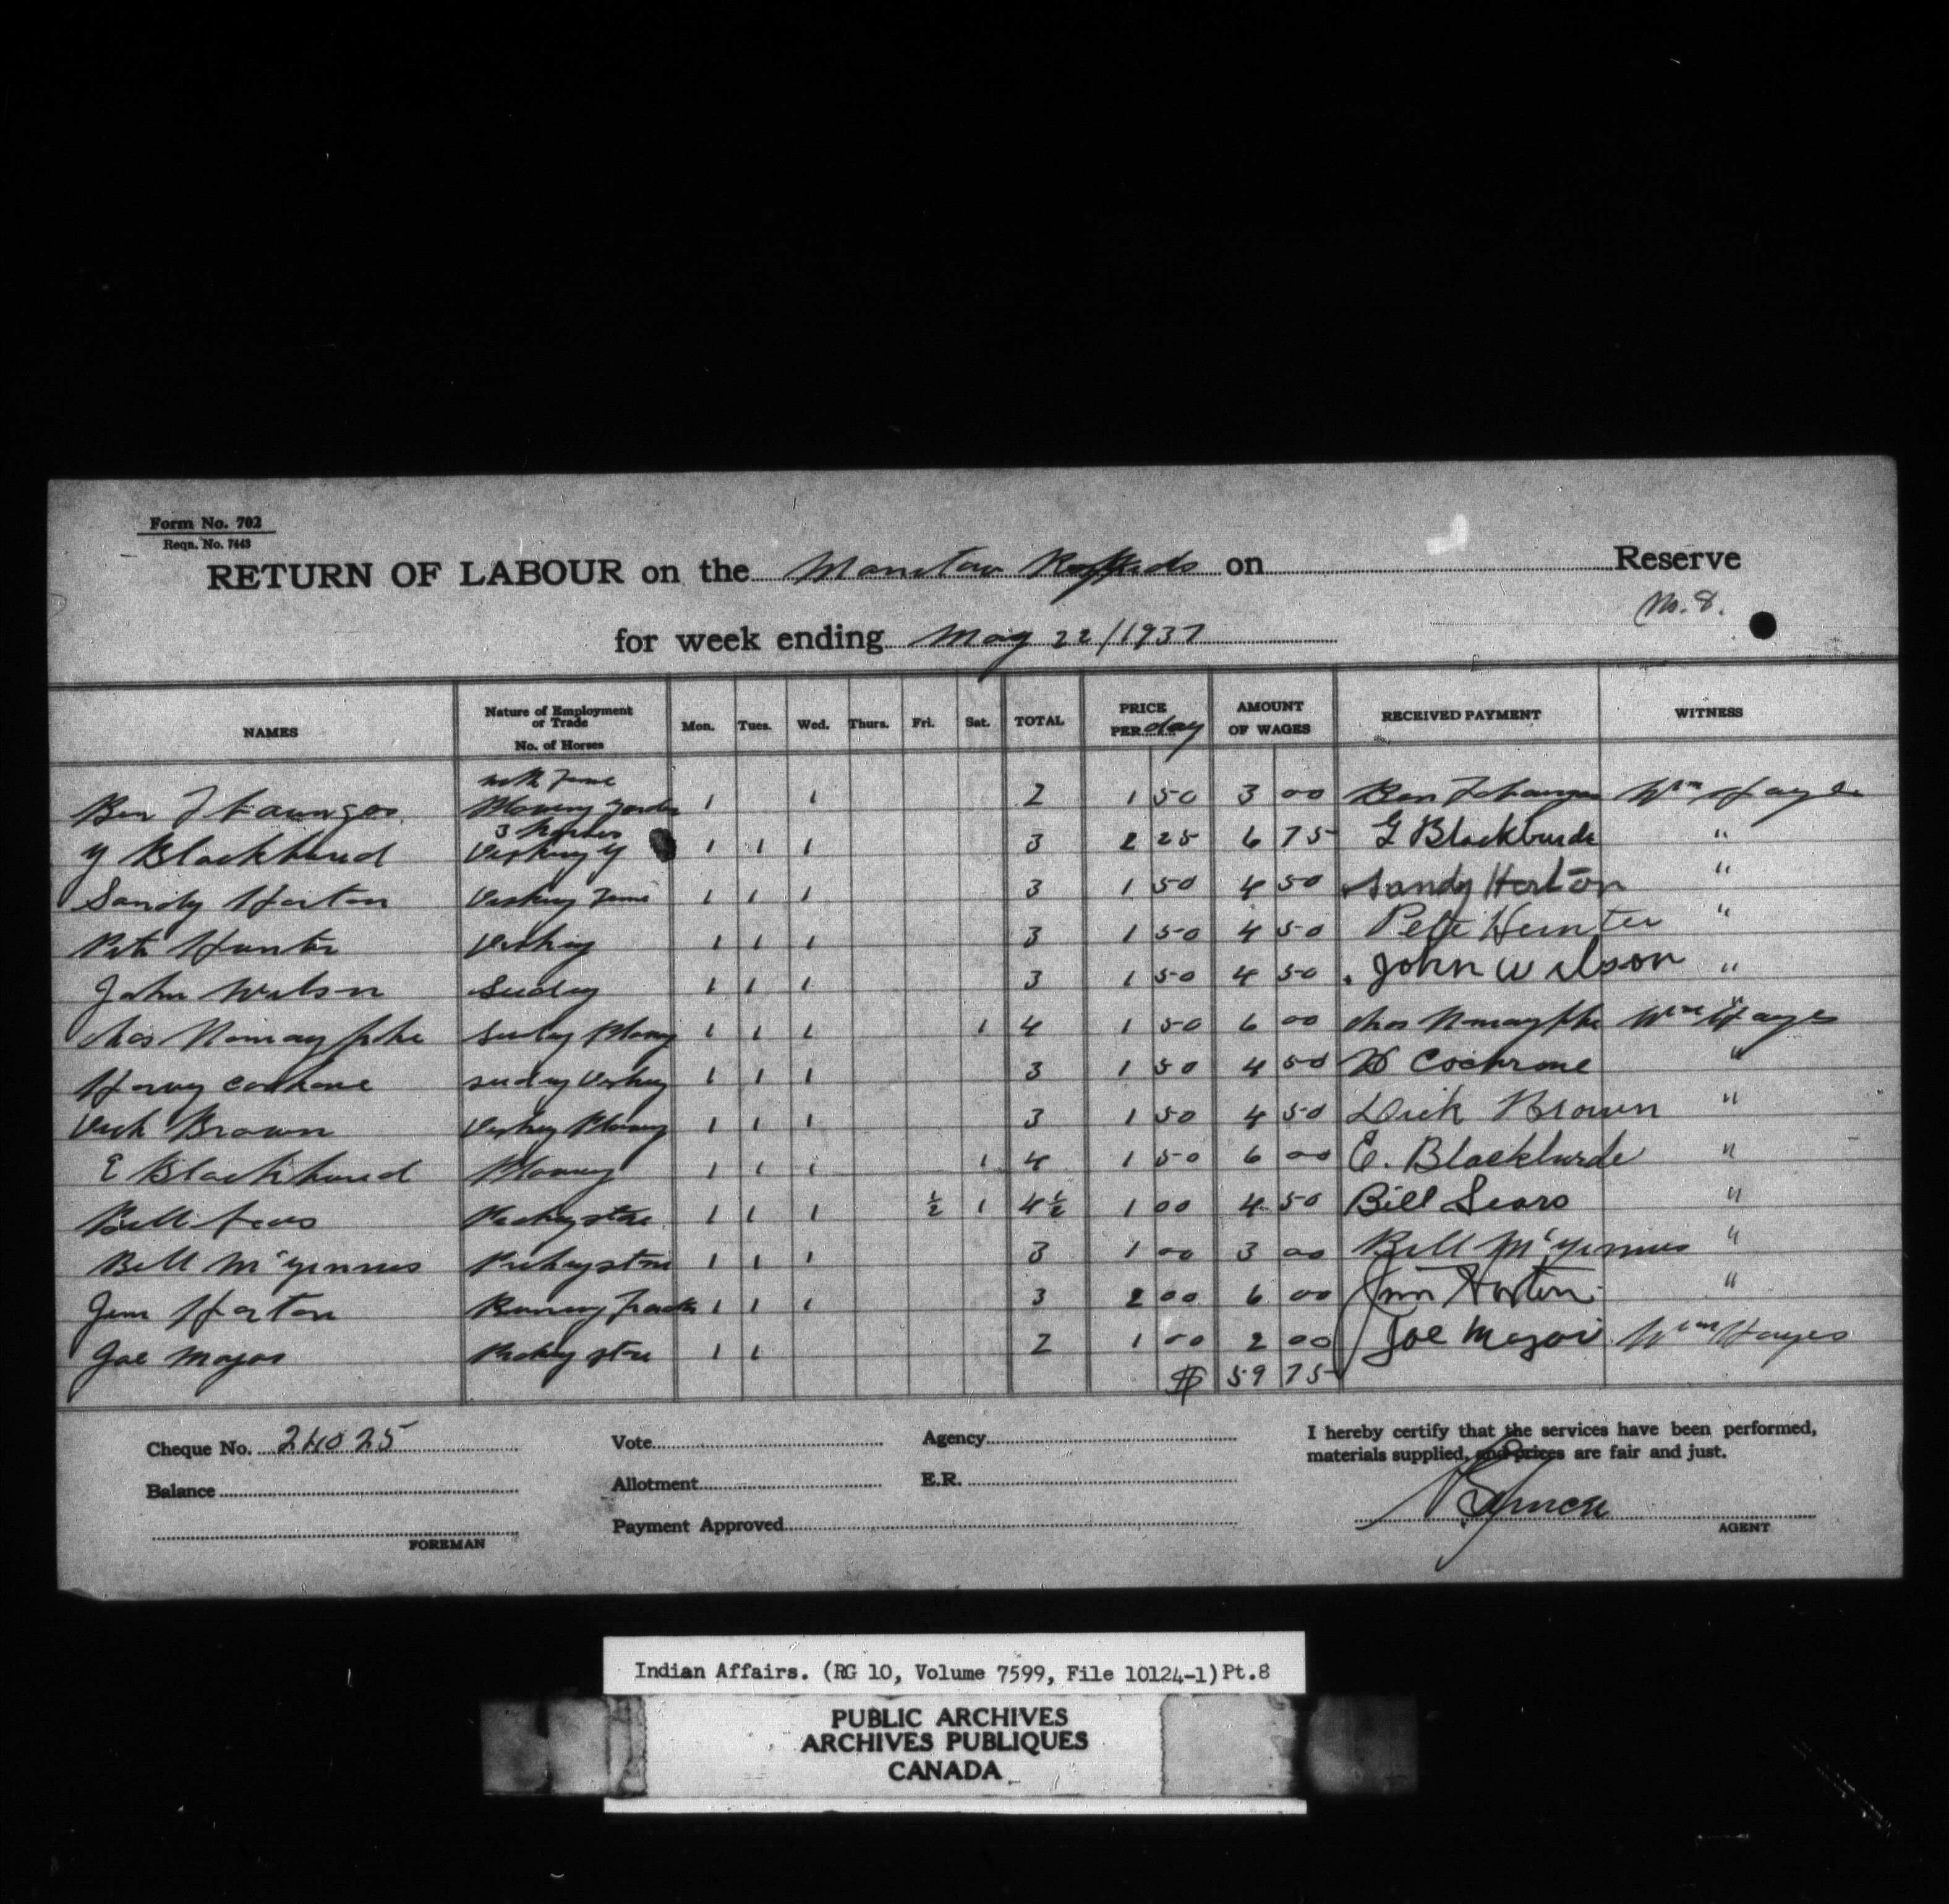 Form No. 702
Reqn. No. 7443
RETURN OF LABOUR on the Manitou Rapids on Reserve
No. 8.
for week ending May 22/1937
NAMES Nature of Employment or Trade No. of Horses Mon. Tues. Wed. Thurs. Fri. Sat. TOTAL PRICE PER day AMOUNT OF WAGES RECEIVED PAYMENT WITNESS
Ben 1 1 2 1 50 3 00 Ben Wm Hayes
G Blackburd 3 horses 1 1 1 3 2 25 6 75 G Blackburde "
Sandy Horton 1 1 1 3 1 50 4 50 Sandy Horton "
Pete Hunter 1 1 1 3 1 50 4 50 Pete Hunter "
John Wilson 1 1 1 3 1 50 4 50 John Wilson "
Chas 1 1 1 1 4 1 50 6 00 Chas Wm Hayes "
Harvy Cochrane 1 1 1 3 1 50 4 50 H Cochrane "
Dick Brown 1 1 1 3 1 50 4 50 Dick Brown "
E Blackburd 1 1 1 1 4 1 50 6 00 E. Blackburde "
Bill Sears 1 1 1 ½ 1 4½ 1 00 4 50 Bill Sears "
Bill McGinnus 1 1 1 3 1 00 3 00 Bill McGinnus "
Jim Horton 1 1 1 3 2 00 6 00 Jim Horton "
Joe Major 1 1 2 1 00 2 00 Joe Major Wm Hayes
$ 59 75
Cheque No. 24025 Vote Agency
I hereby certify that the services have been performed,
materials supplied, and prices are fair and just.
Balance Allotment E.R.
Payment Approved
Spencer
FOREMAN AGENT
Indian Affairs. (RG 10, Volume 7599, File 10124-1) Pt.8
PUBLIC ARCHIVES
ARCHIVES PUBLIQUES
CANADA